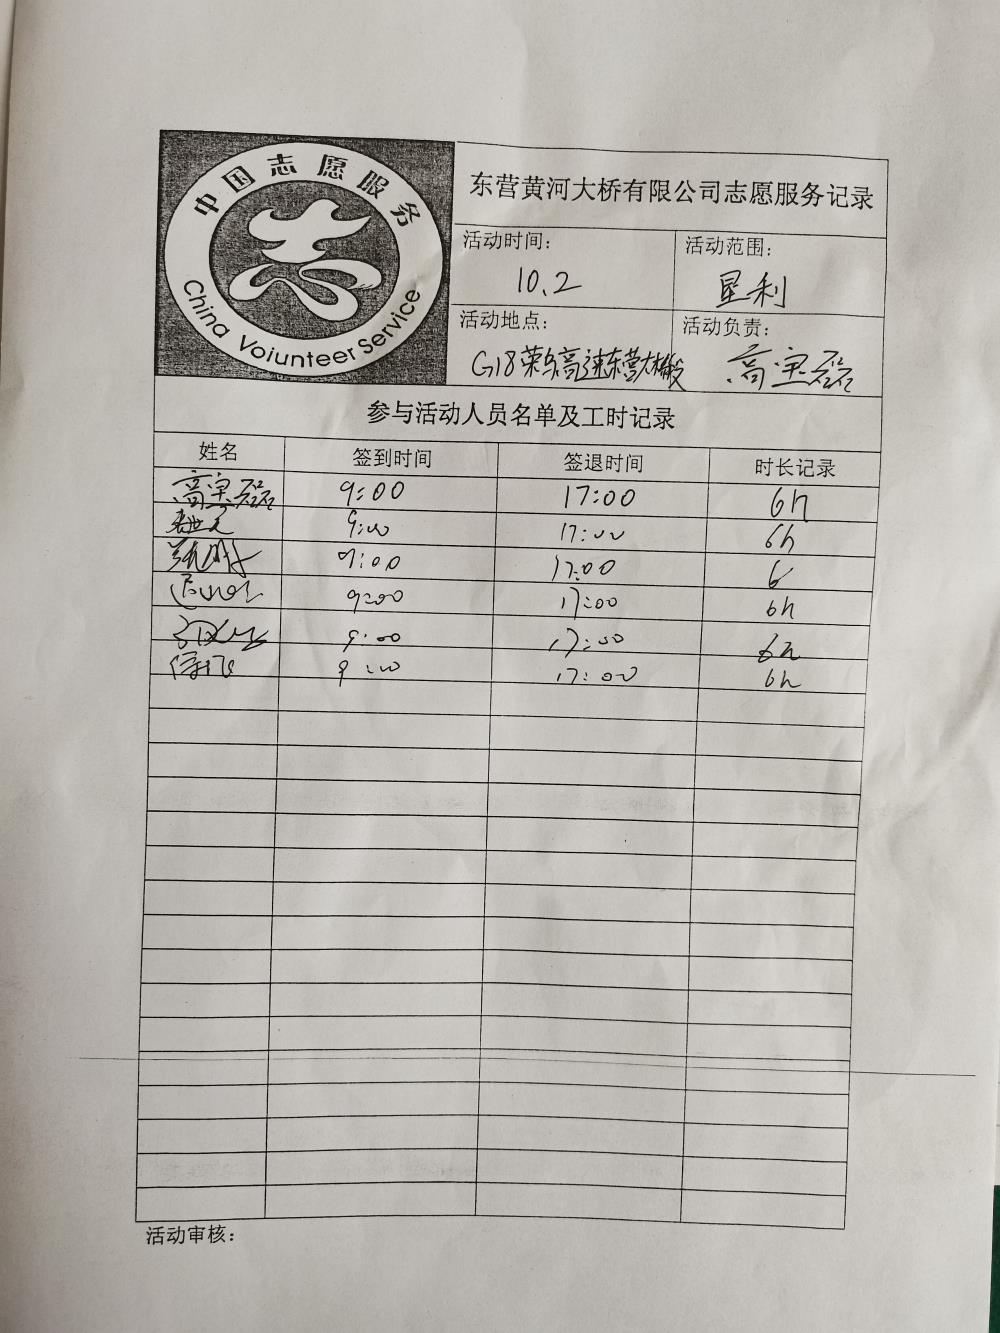 中国志愿服务
China Voiunteer Service
东营黄河大桥有限公司志愿服务记录
活动时间： 活动范围：
10.2 垦利
活动地点： 活动负责：
G18荣乌高速东营大桥 高宝磊
参与活动人员名单及工时记录
姓名 签到时间 签退时间 时长记录
高宝磊 9:00 17:00 6h
9:00 17:00 6h
9:00 17:00 6
9:00 17:00 6h
9:00 17:00 6h
9:00 17:00 6h
活动审核：